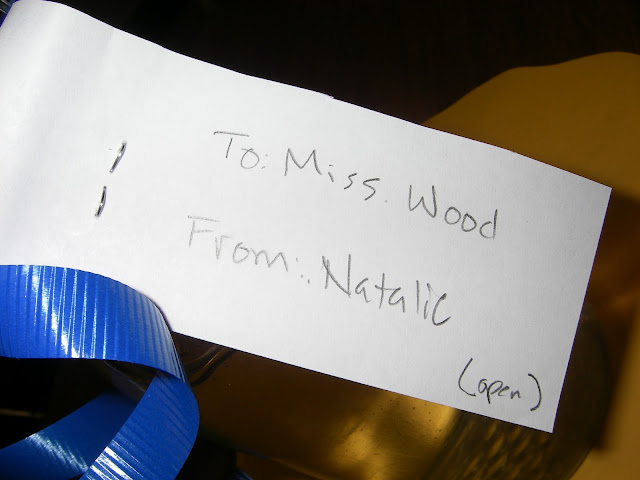 To: Miss. Wood
From:. Natalie
(open)